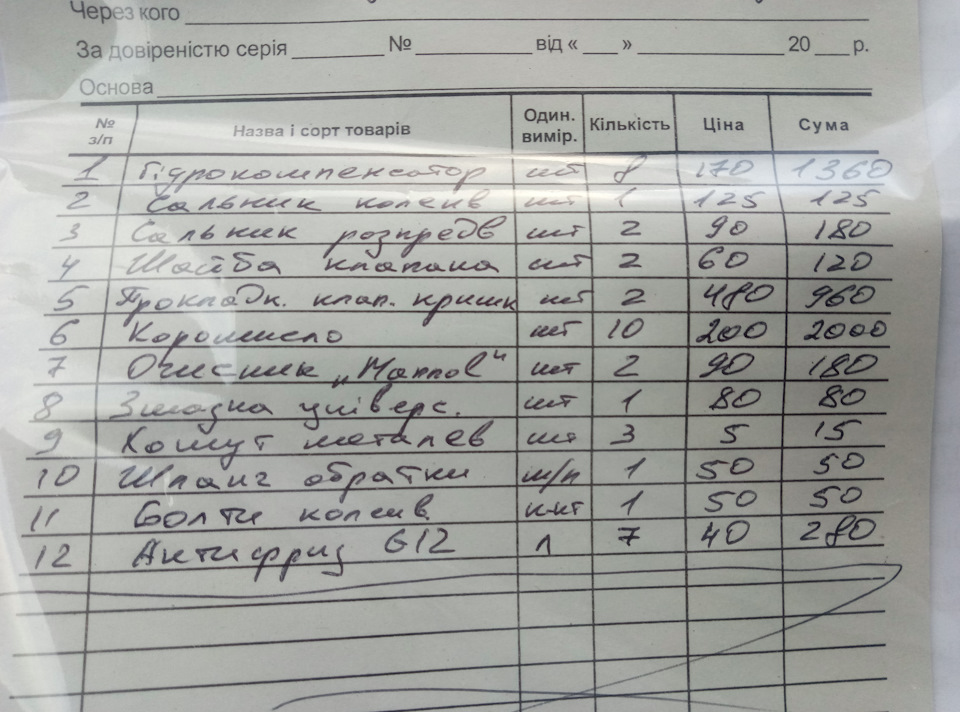 Через кого
За довіреністю серія № від « » 20 р.
Основа
№ з/п Назва і сорт товарів Один. вимір. Кількість Ціна Сума
1 Гідрокомпенсатор шт 8 170 1360
2 Сальник колінв шт 1 125 125
3 Сальник розпредв шт 2 90 180
4 Шайба клапана шт 2 60 120
5 Прокладк. клап. кришк шт 2 480 960
6 Коромисло шт 10 200 2000
7 Очисник „Mannol“ шт 2 90 180
8 Змазка універс. шт 1 80 80
9 Хомут металев шт 3 5 15
10 Шланг обратки м/п 1 50 50
11 Болти колінв. к-кт 1 50 50
12 Антифриз G12 л 7 40 280